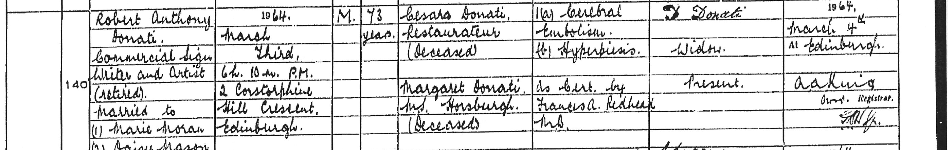 Robert Anthony
Donati.
Commercial Sign
Writer and Artist
(retired).
Married to
(1) Marie Moran
(2) Daisy Mason
140
1964.
March
Third,
6h. 10m. P.M.
2 Corstorphine
Hill Crescent,
Edinburgh.
M.
73
years.
Cesare Donati,
Restaurateur
(Deceased)
Margaret Donati,
M.S. Horsburgh.
(Deceased)
1(a) Cerebral
Embolism.
(b) Hyperpiesis.
As Cert. by
Francis A. Redhead
M.B.
D Donati
Widow.
Present.
1964.
March 4th
At Edinburgh.
Registrar.